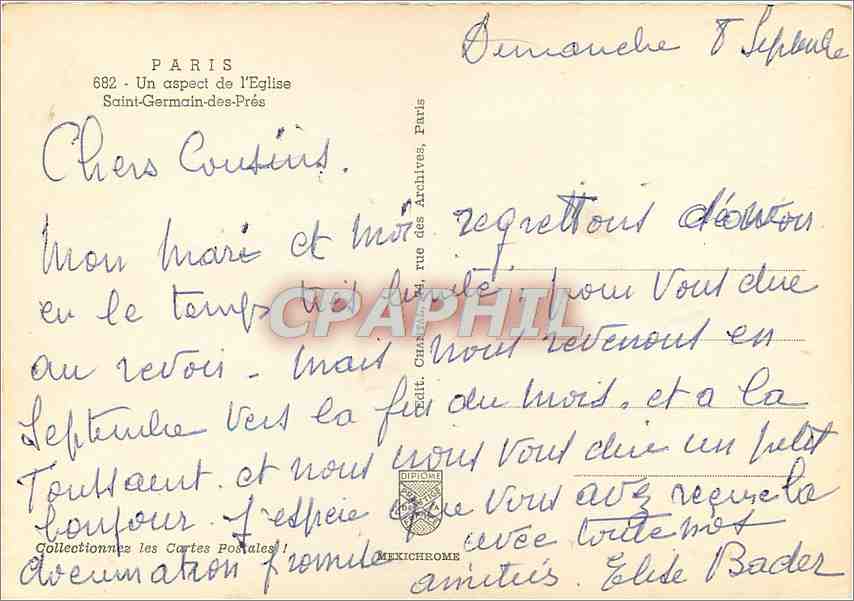 Demanche 8 Septembre
PARIS
682 - Un aspect de l'Eglise
Saint-Germain-des-Prés
Chers Cousins.
Mon mari et moi regrettons d'avoir
eu le temps très limité. pour vous dire
au revoir - mais nous revenons en
Septembre vers la fin du mois. et a la
Toussaint. et nous vous dire un petit
bonjour. J'espère que vous avez reçue la
documation promise avec toute nos
amitiés. Elise Bader
Edit. CHANTAL, rue des Archives, Paris
CPAPHIL
DIPLOME
Collectionnez les Cartes Postales !
MEXICHROME